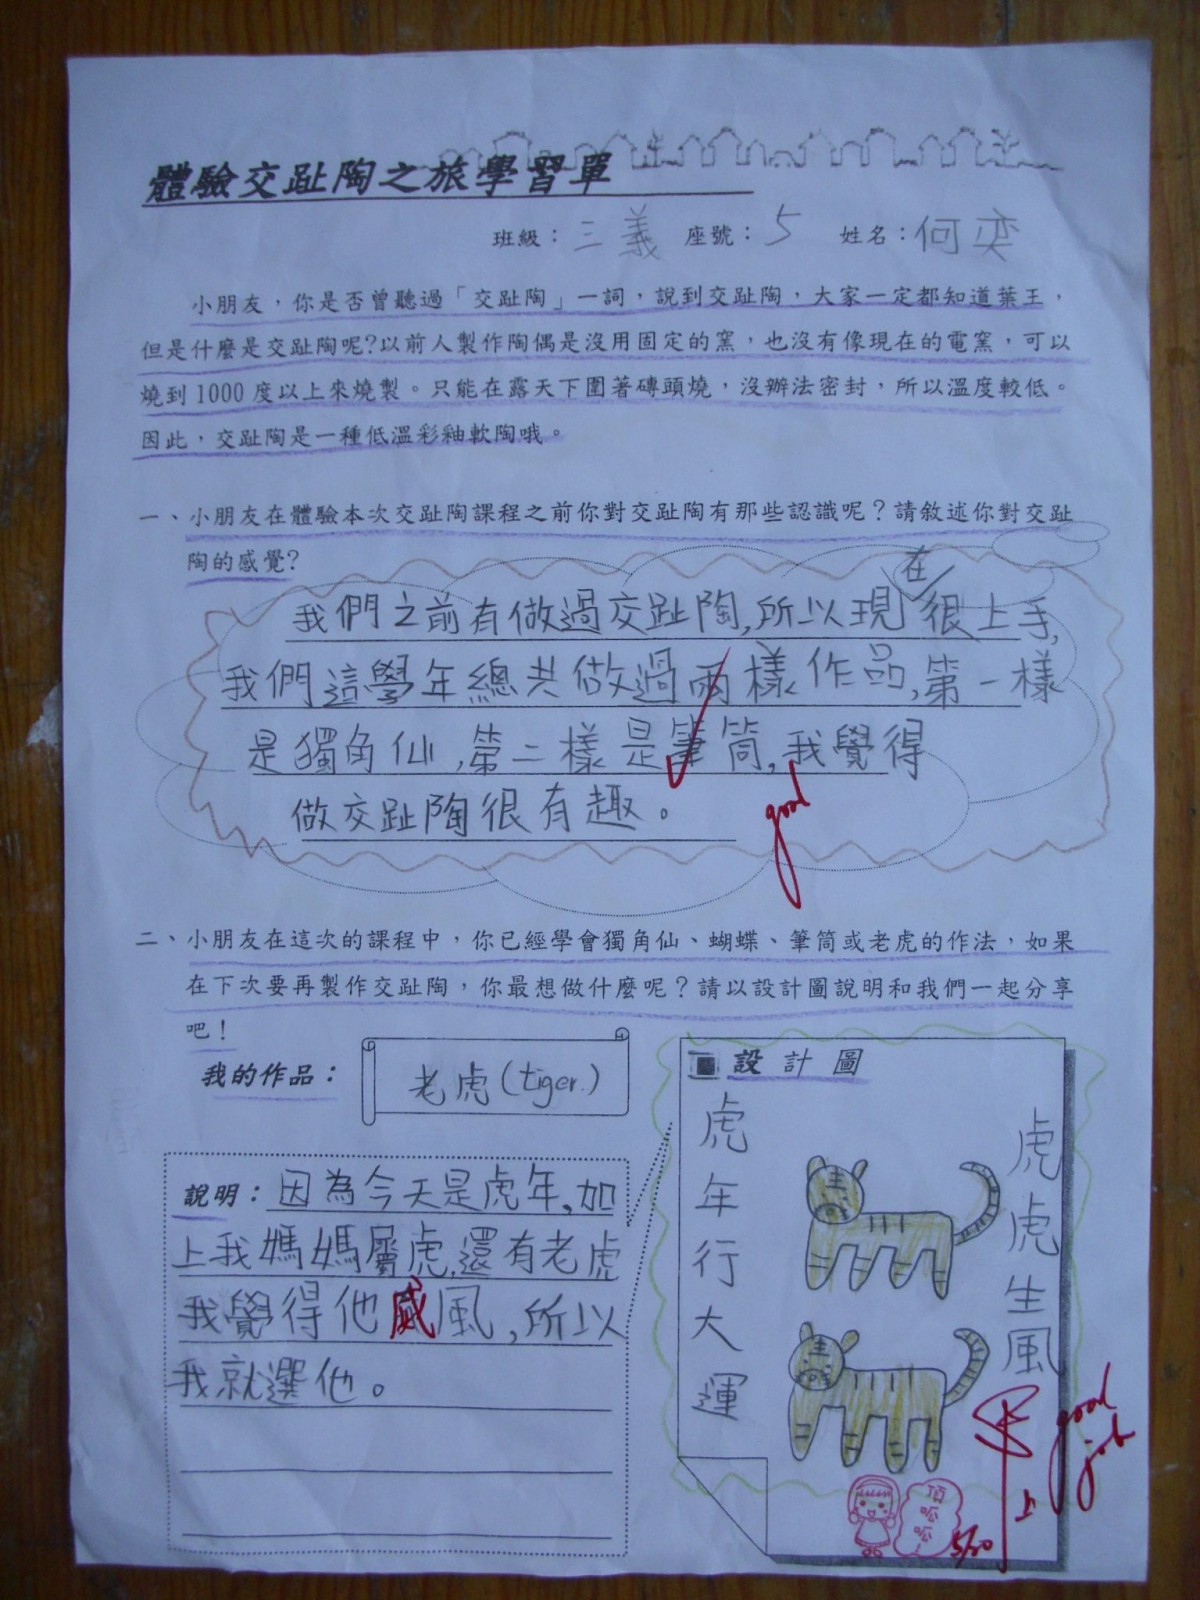 體驗交趾陶之旅學習單
班級：三義 座號：5 姓名：何奕
小朋友，你是否曾聽過「交趾陶」一詞，說到交趾陶，大家一定都知道葉王，
但是什麼是交趾陶呢?以前人製作陶偶是沒用固定的窯，也沒有像現在的電窯，可以
燒到1000度以上來燒製。只能在露天下圍著磚頭燒，沒辦法密封，所以溫度較低。
因此，交趾陶是一種低溫彩釉軟陶哦。
一、小朋友在體驗本次交趾陶課程之前你對交趾陶有那些認識呢？請敘述你對交趾
陶的感覺?
我們之前有做過交趾陶,所以現在很上手,
我們這學年總共做過兩樣作品,第一樣
是獨角仙,第二樣是筆筒,我覺得
做交趾陶很有趣。
good
二、小朋友在這次的課程中，你已經學會獨角仙、蝴蝶、筆筒或老虎的作法，如果
在下次要再製作交趾陶，你最想做什麼呢？請以設計圖說明和我們一起分享
吧！
我的作品：
老虎(tiger.)
說明：因為今天是虎年,加
上我媽媽屬虎,還有老虎
我覺得他威風,所以
我就選他。
設計圖
虎年行大運
虎虎生風
good
job
上
頂呱呱
5/20